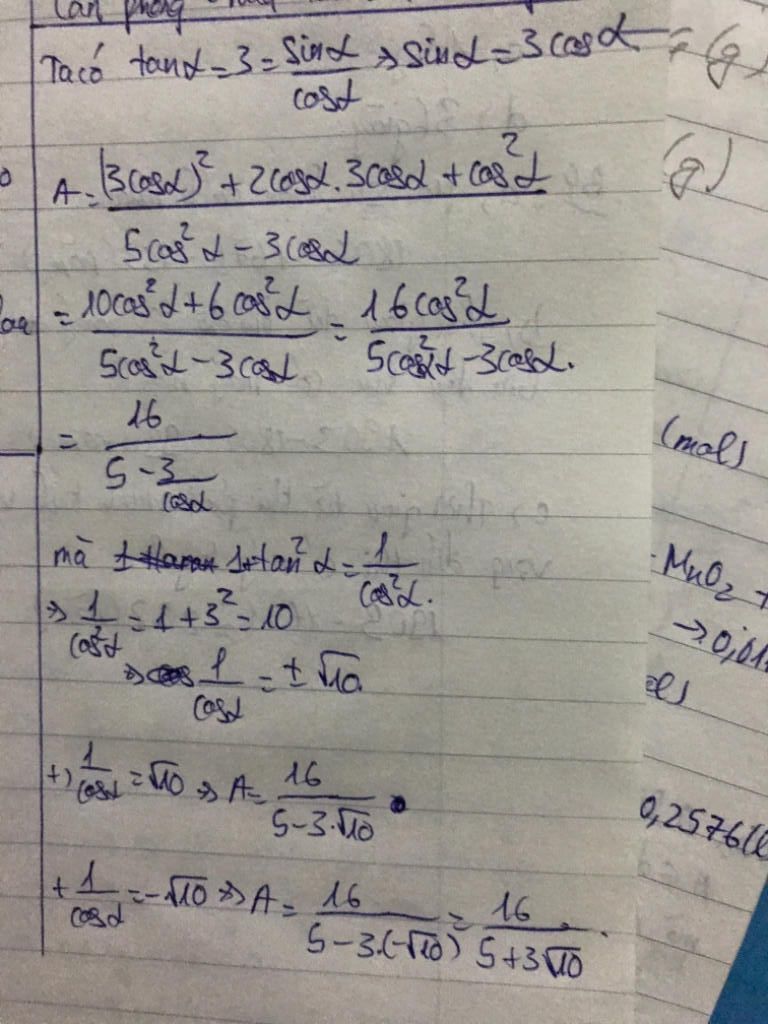 Ta có tanα = 3 = sinα/cosα ⇒ sinα = 3cosα = (g)
A = (3cosα)² + 2cosα.3cosα + cos²α / 5cos²α - 3cosα
(g)
= 10cos²α + 6cos²α / 5cos²α - 3cosα = 16cos²α / 5cos²α - 3cosα.
= 16 / 5 - 3/cosα
(mol)
mà 1+tan²α = 1/cos²α.
MnO₂ +
⇒ 1/cos²α = 1 + 3² = 10
→ 0,01
⇒ 1/cosα = ± √10
+) 1/cosα = √10 ⇒ A = 16 / 5 - 3.√10
0,2576
+ 1/cosα = -√10 ⇒ A = 16 / 5 - 3.(-√10) = 16 / 5 + 3√10.